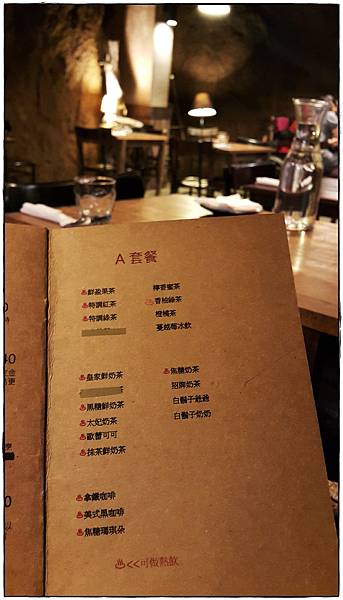 A 套餐
♨鮮葉果茶
♨特調紅茶
♨特調綠茶
檸香蜜茶
♨香柚綠茶
橙橘茶
蔓越莓冰飲
♨皇家鮮奶茶
♨黑糖鮮奶茶
♨太妃奶茶
♨歐蕾可可
♨抹茶鮮奶茶
♨焦糖奶茶
招牌奶茶
白鬍子爺爺
白鬍子奶奶
♨拿鐵咖啡
♨美式黑咖啡
♨焦糖瑪琪朵
♨<<可做熱飲